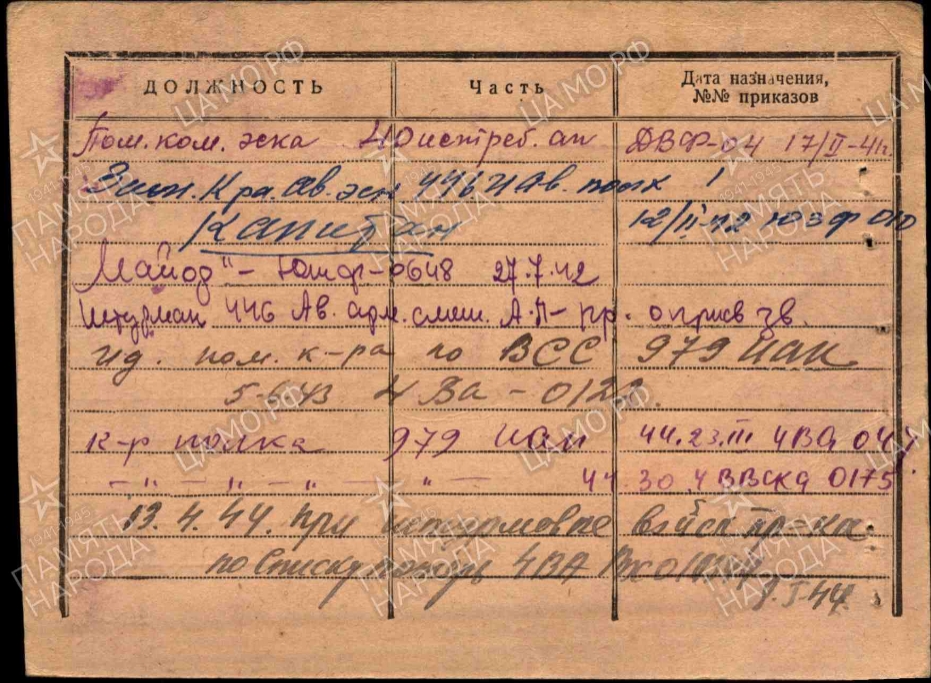 ДОЛЖНОСТЬ Часть Дата назначения, №№ приказов
Пом. ком. эска 40 истреб. ап ДВФ-04 17/II-41г.
Зам. К-ра. ав. эск 446 Ав. полк
Капитан 12/II-42 ЮЗФ 010
"Майор" - Южф-0648 27.7.42
Штурман 446 Ав. арм. смеш. А.П - пр. о присв зв.
Ид. пом. к-ра по ВСС 979 иап
4 Ва -
К-р полка 979 иап 44.23.III 4ВА
-"- -"- -"- 44.30. 4 ВВСКА 0175
13.4.44. при штурмовке войск пр-ка.
по списку 4ВА
44г.
ПАМЯТЬ НАРОДА
1941-1945
ЦАМО РФ